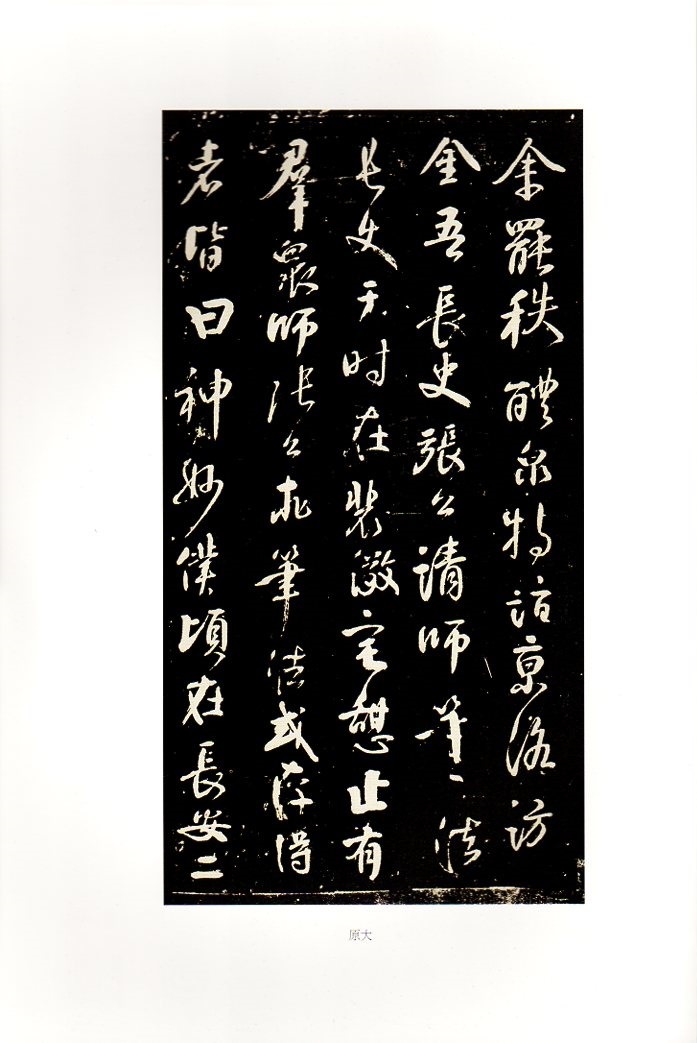 余罷秩醴泉特詣京洛訪
金吾長史張公請師筆法
長史于时在裴儆宅憩止有
羣眾師張公求筆法或存得
者皆曰神妙僕頃在長安二
原大